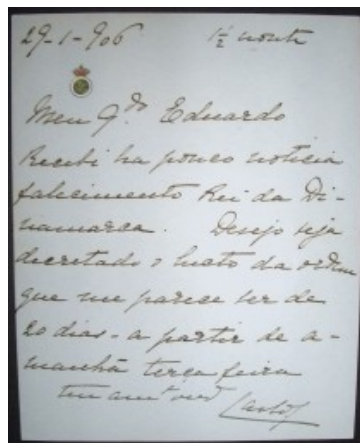 29-1-906 1½ noute
Meu Qdo Eduardo
Recebi ha pouco noticia
falecimento Rei da Di-
namarca. Desejo seja
decretado o lucto da ordem
que me parece ser de
20 dias - a partir de a-
manhã terça feira
Carlos